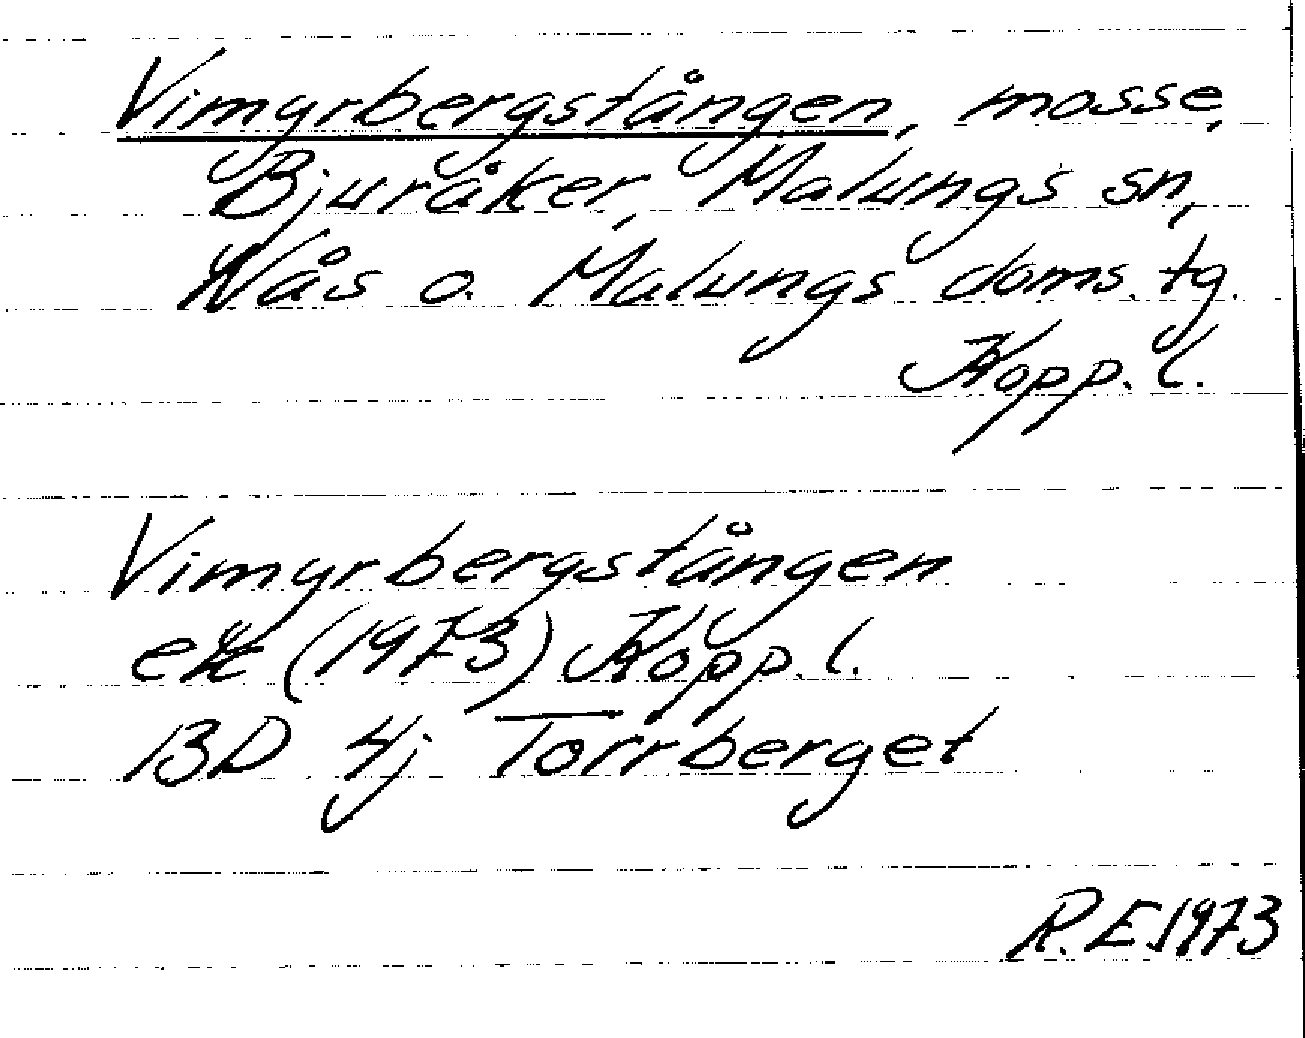 Vimyrbergstången, mosse,
Bjuråker, Malungs sn,
Nås o. Malungs doms. tg.
Kopp. l.
Vimyrbergstången
ek (1973) Kopp. l.
BD 4j Torrberget
R.E.1973